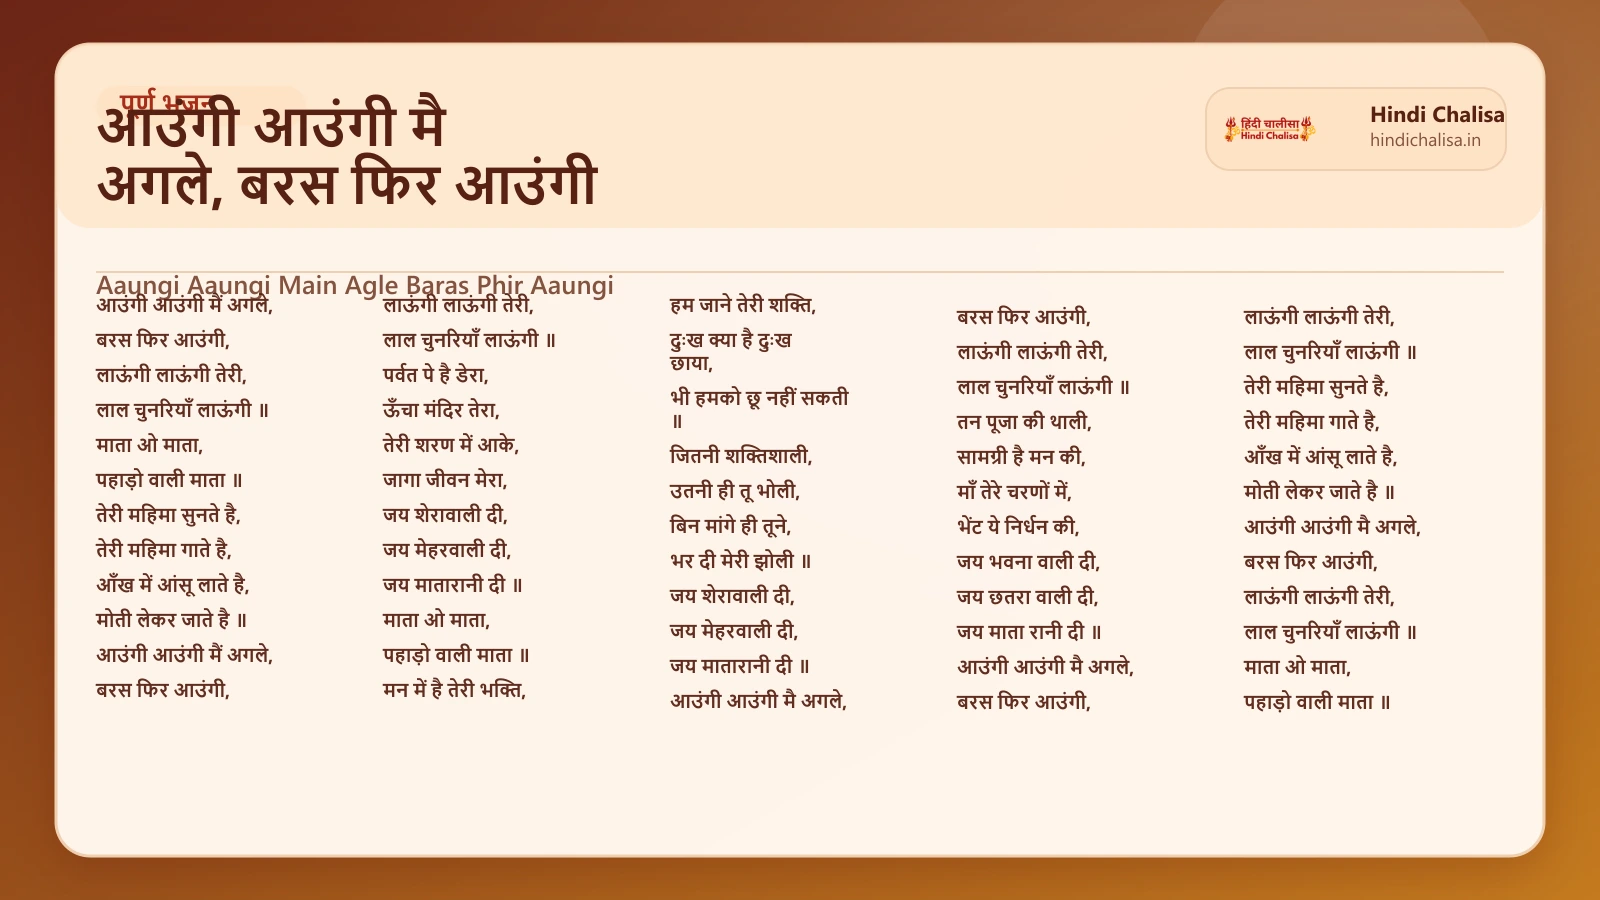 पूर्ण भजन
आउंगी आउंगी मै
अगले, बरस फिर आउंगी
हिंदी चालीसा
Hindi Chalisa
Hindi Chalisa
hindichalisa.in
Aaungi Aaungi Main Agle Baras Phir Aaungi
आउंगी आउंगी मैं अगले,
बरस फिर आउंगी,
लाऊंगी लाऊंगी तेरी,
लाल चुनरियाँ लाऊंगी ॥
माता ओ माता,
पहाड़ो वाली माता ॥
तेरी महिमा सुनते है,
तेरी महिमा गाते है,
आँख में आंसू लाते है,
मोती लेकर जाते है ॥
आउंगी आउंगी मैं अगले,
बरस फिर आउंगी,
लाऊंगी लाऊंगी तेरी,
लाल चुनरियाँ लाऊंगी ॥
पर्वत पे है डेरा,
ऊँचा मंदिर तेरा,
तेरी शरण में आके,
जागा जीवन मेरा,
जय शेरावाली दी,
जय मेहरवाली दी,
जय मातारानी दी ॥
माता ओ माता,
पहाड़ो वाली माता ॥
मन में है तेरी भक्ति,
हम जाने तेरी शक्ति,
दुःख क्या है दुःख
छाया,
भी हमको छू नहीं सकती
॥
जितनी शक्तिशाली,
उतनी ही तू भोली,
बिन मांगे ही तूने,
भर दी मेरी झोली ॥
जय शेरावाली दी,
जय मेहरवाली दी,
जय मातारानी दी ॥
आउंगी आउंगी मै अगले,
बरस फिर आउंगी,
लाऊंगी लाऊंगी तेरी,
लाल चुनरियाँ लाऊंगी ॥
तन पूजा की थाली,
सामग्री है मन की,
माँ तेरे चरणों में,
भेंट ये निर्धन की,
जय भवना वाली दी,
जय छतरा वाली दी,
जय माता रानी दी ॥
आउंगी आउंगी मै अगले,
बरस फिर आउंगी,
लाऊंगी लाऊंगी तेरी,
लाल चुनरियाँ लाऊंगी ॥
तेरी महिमा सुनते है,
तेरी महिमा गाते है,
आँख में आंसू लाते है,
मोती लेकर जाते है ॥
आउंगी आउंगी मै अगले,
बरस फिर आउंगी,
लाऊंगी लाऊंगी तेरी,
लाल चुनरियाँ लाऊंगी ॥
माता ओ माता,
पहाड़ो वाली माता ॥